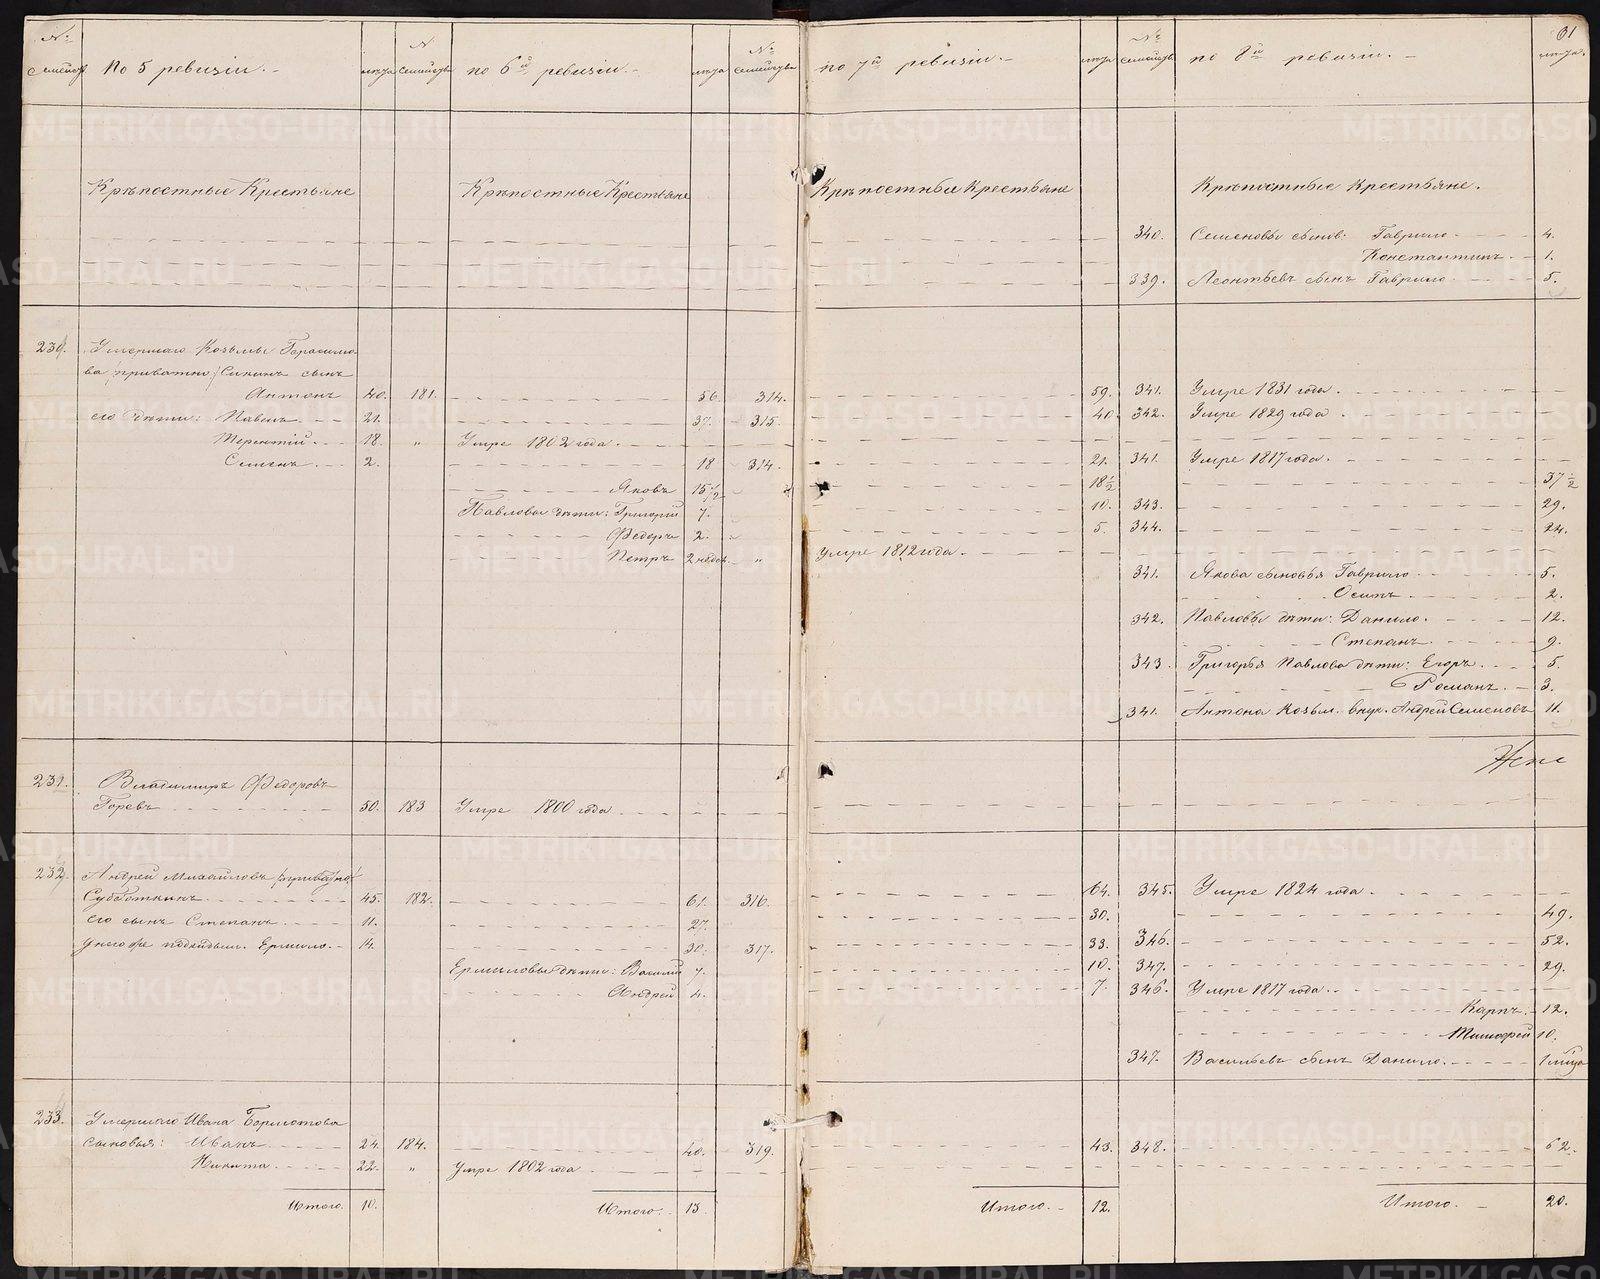 № семейст. По 5 ревизiи. лѣта № семейства по 6й ревизiи. лѣта № семейства по 7й ревизiи. лѣта № семейств. по 8й ревизiи. лѣта. 61
Крѣпостные Крестьяне Крѣпостные Крестьяне Крѣпостные Крестьяне Крѣпостные Крестьяне.
340. Семеновы сынов: Гаврило 4.
Константинъ 1.
339. Леонтьевъ сынъ Гаврило 5.
230. Умершаго Козьмы Герасимо-
ва приватно сынъ
Антонъ 40. 181. 56 314. 59. 341. Умре 1831 года.
его дѣти: Павелъ 21. 37. 315. 40. 342. Умре 1829 года.
Терентiй 18. " Умре 1802 года.
Семенъ 2. 18 314. 21. 341. Умре 1817 года.
Яковъ 15 1/2 18 1/2 37 1/2
Павловы дѣти: Григорiй 7. 10. 343. 29.
Ѳедоръ 2. 5. 344. 24.
Петръ 2 недѣл. " умре 1812 года.
341. Якова сыновья Гаврило 5.
Осипъ 2.
342. Павловы дѣти: Данило. 12.
Степанъ 9.
343. Григорья Павлова дѣти: Егоръ. 5.
Романъ. 3.
341. Антона Козьм. внук. Андрей Семеновъ 11.
231. Владимиръ Ѳедоровъ
Горевъ 50. 183 Умре 1800 года
232. Андрей Михайловъ приватно
Субботкинъ 45. 182. 61. 316. 64. 345. Умре 1824 года.
его сынъ Степанъ 11. 27. 30. 49.
у него же подкидыш. Ермило. 14. 30. 317. 33. 346. 52.
Ермиловы дѣти: Василiй 7. 10. 347. 29.
Андрей 4. 7. 346. Умре 1817 года.
Карпъ. 12.
Тимофей 10.
347. Васильевъ сынъ Данило. 1 мѣсяца
233. Умершаго Ивана Бармотова
сыновья: Иванъ 24. 184. 40. 319. 43. 348. 62.
Никита 22. " Умре 1802 года
Итого. 10. Итого. 13 Итого. 12. Итого. 20.
METRIKI.GASO-URAL.RU